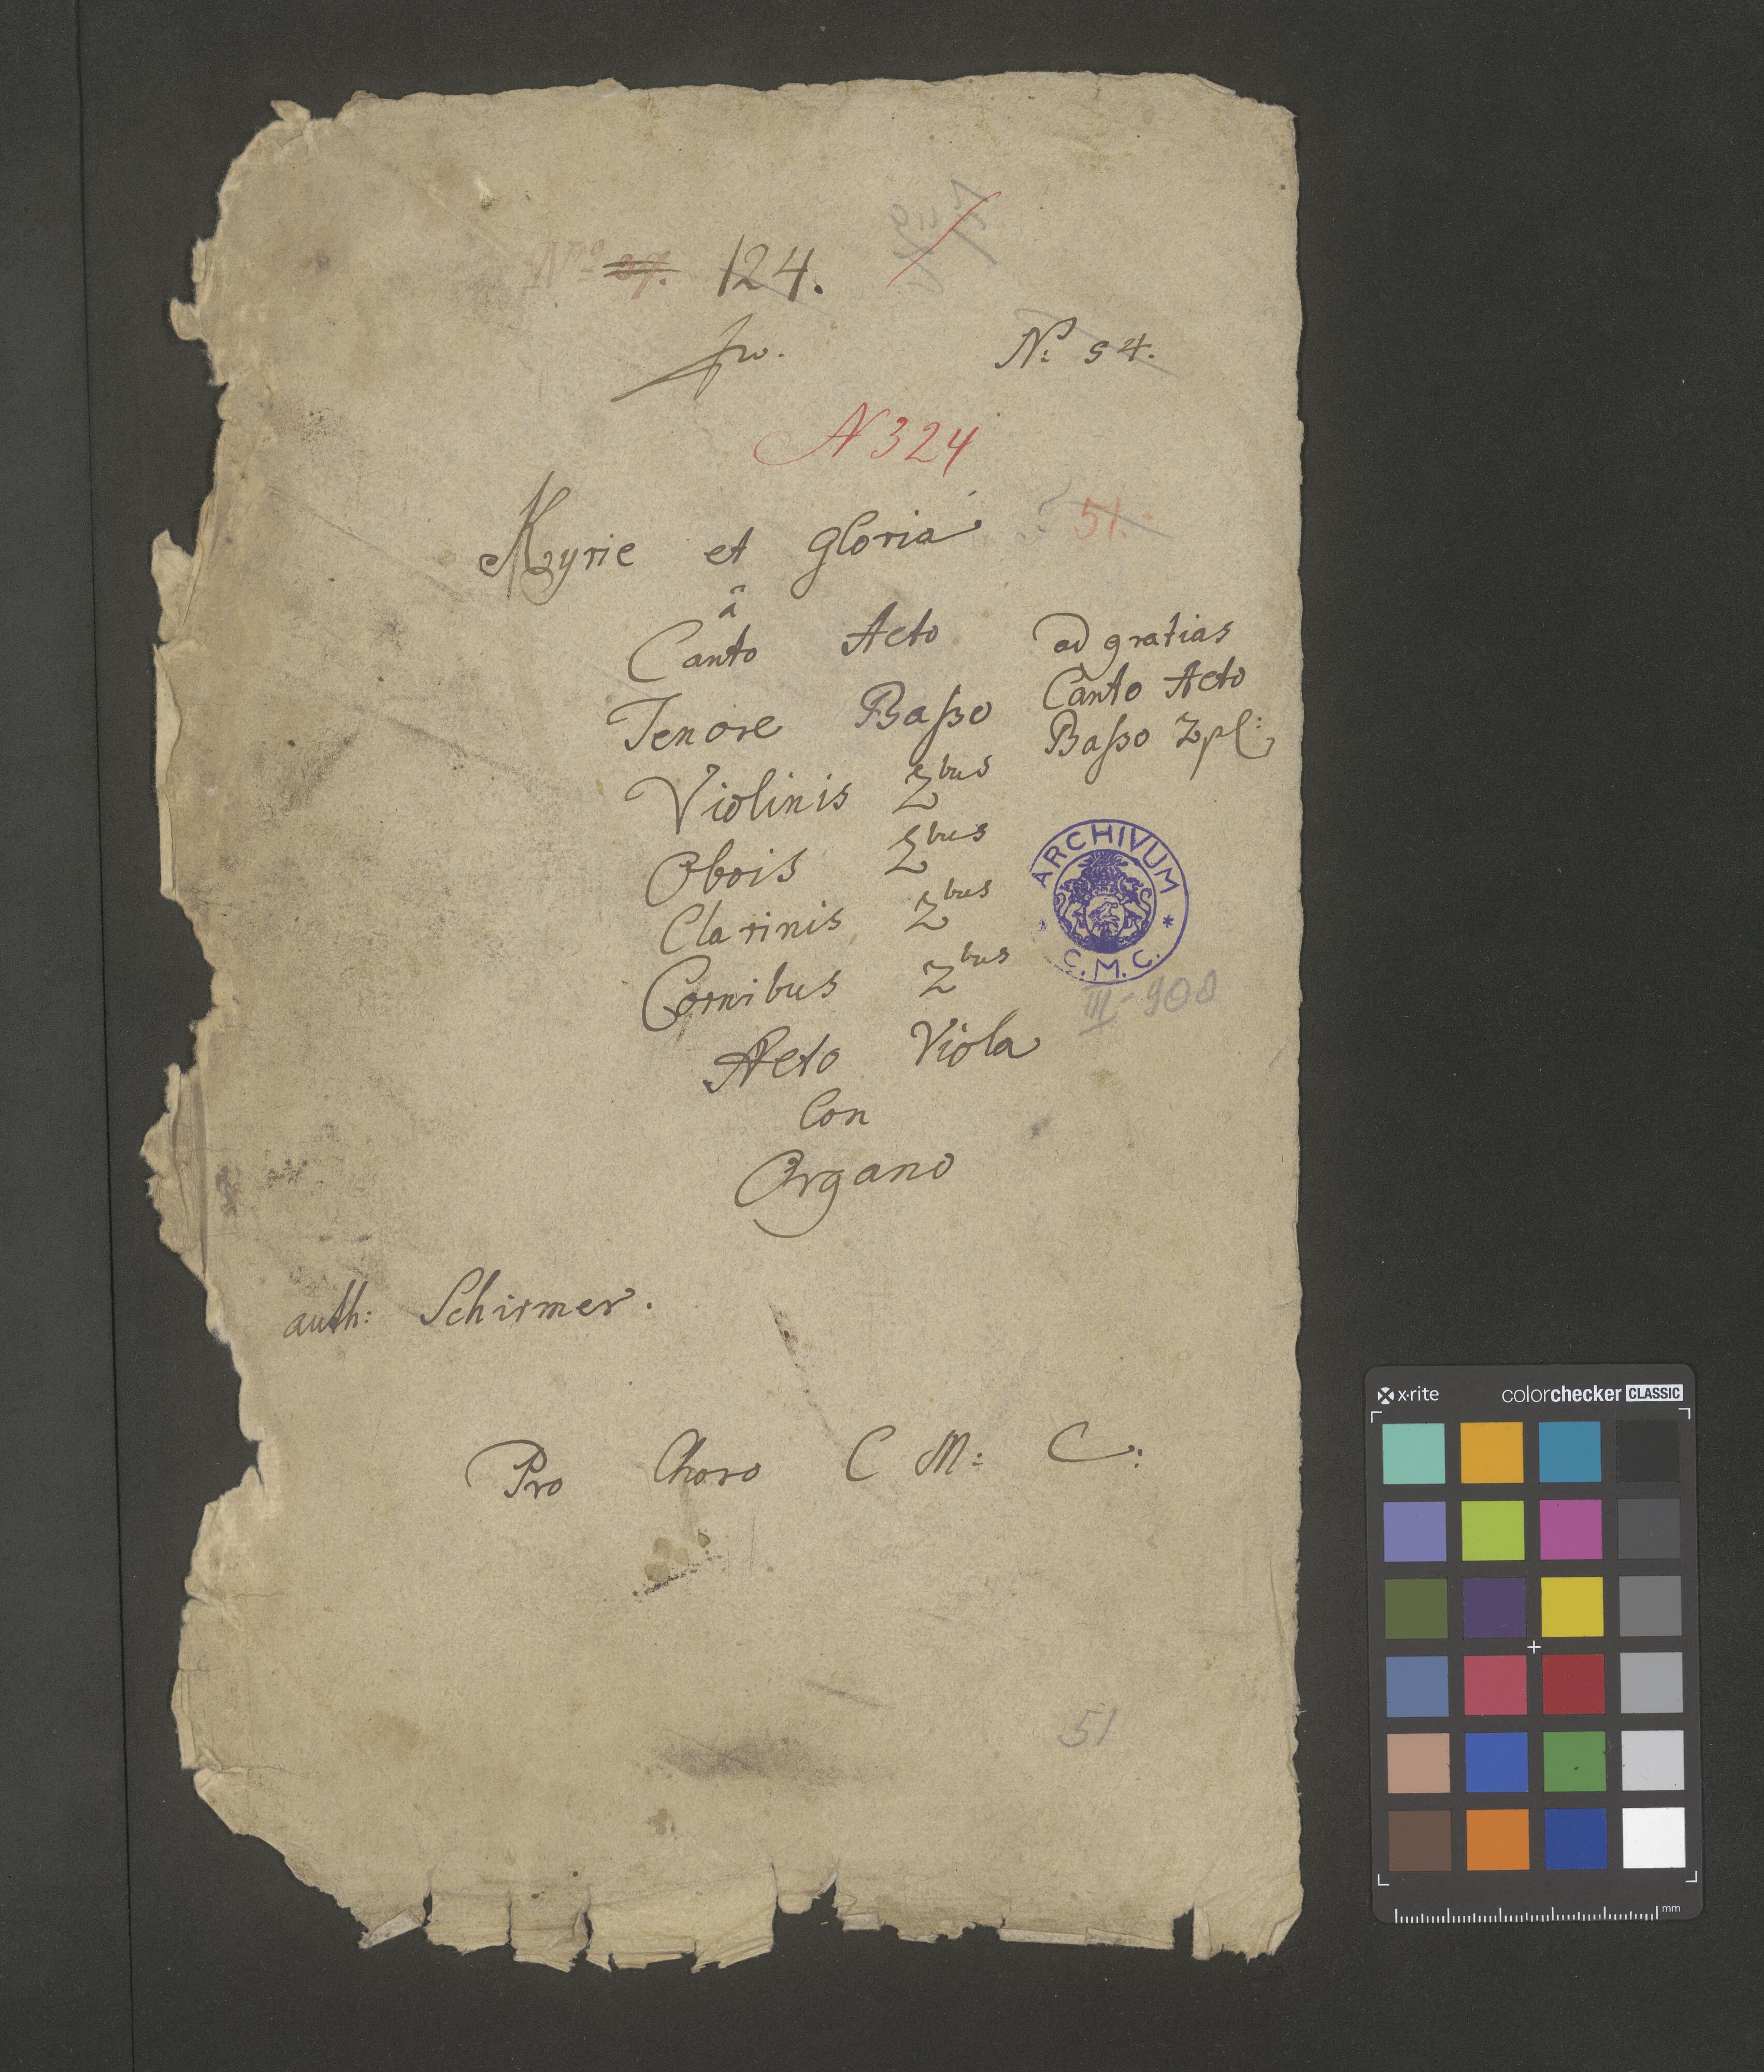 No 124.
No: 54.
N 324
Kyrie et Gloria
51.
â
Canto Alto ad gratias
Tenore Baßo Canto Alto
Violinis 2bus Baßo 2pl:
Obois 2bus
Clarinis 2bus
Cornibus 2bus
Alto Viola
Con
Organo
ARCHIVUM
C.M.C.
III-908
auth: Schirmer.
Pro Choro C M: C:
51
x-rite colorchecker CLASSIC
mm